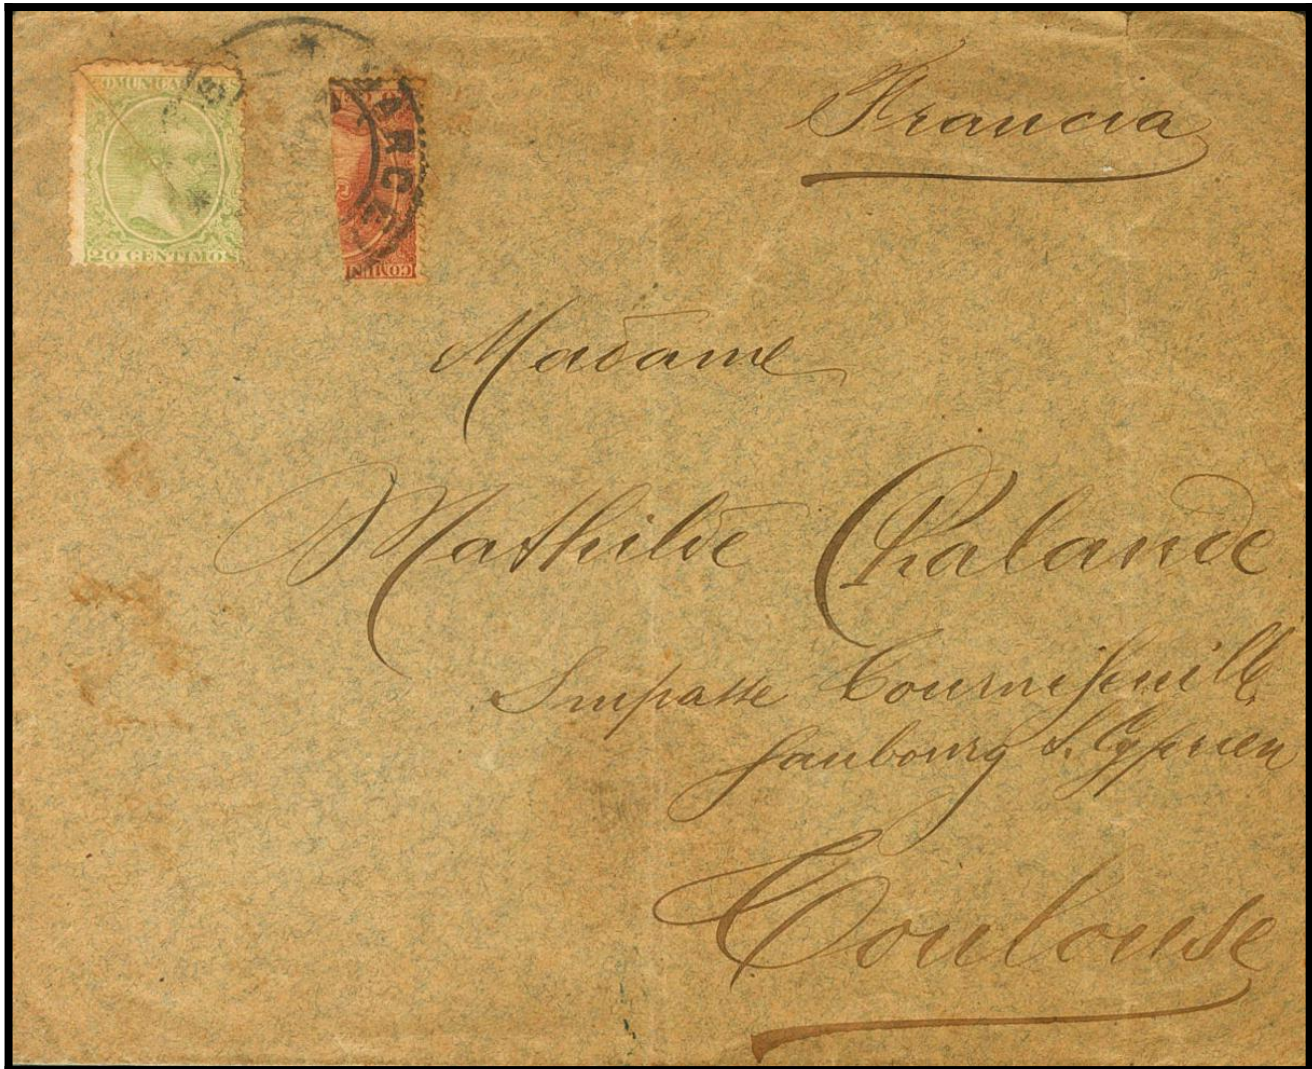 COMUNICA
20 CENTIMOS
O CEN
COMUN
BARCE
Francia
Madame
Mathilde Chalande
Impasse Tournefeuille
faubourg St. Cyprien
Toulouse